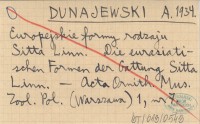 DUNAJEWSKI A. 1934.
Europejskie formy rodzaju
Sitta Linn. Die eurasiati-
schen Formen der Gattung Sitta
Linn. — Acta Ornith. Mus.
Zool. Pol. (Warszawa) 1, nr 7.